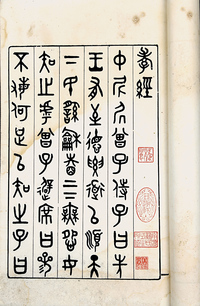 孝經
中尼凥曾子侍子曰先
王有至德要道以順天
下民用和睦上下無怨女
知之乎曾子避席曰參
不敏何足以知之子曰